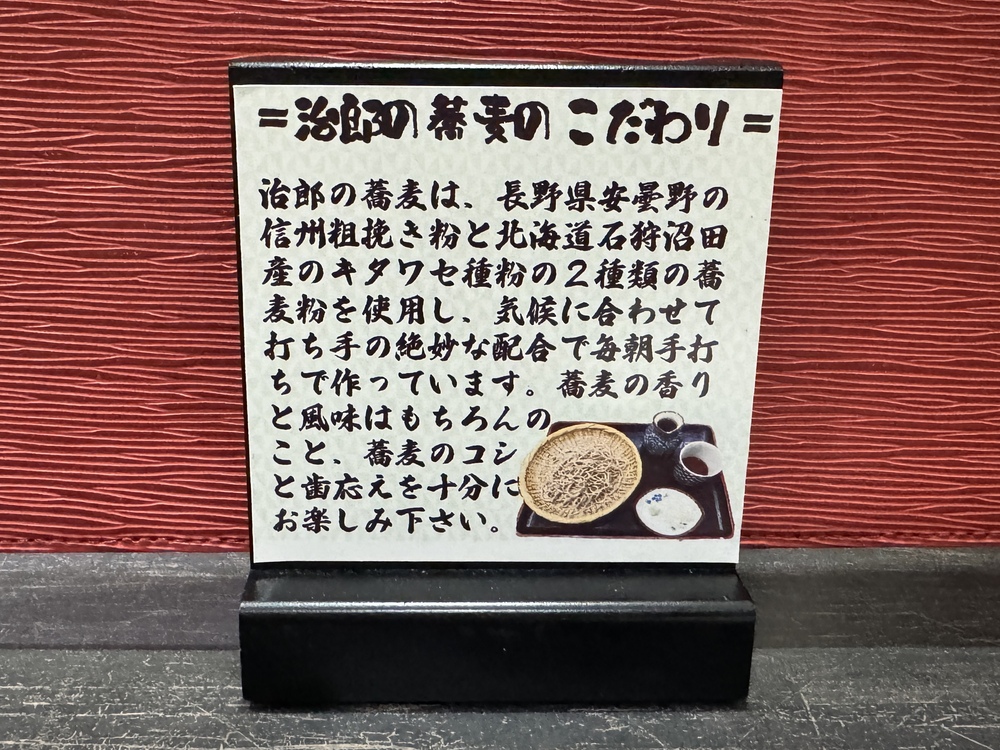 =治郎の蕎麦のこだわり=
治郎の蕎麦は、長野県安曇野の
信州粗挽き粉と北海道石狩沼田
産のキタワセ種粉の2種類の蕎
麦粉を使用し、気候に合わせて
打ち手の絶妙な配合で毎朝手打
ちで作っています。蕎麦の香り
と風味はもちろんの
こと、蕎麦のコシ
と歯応えを十分に
お楽しみ下さい。